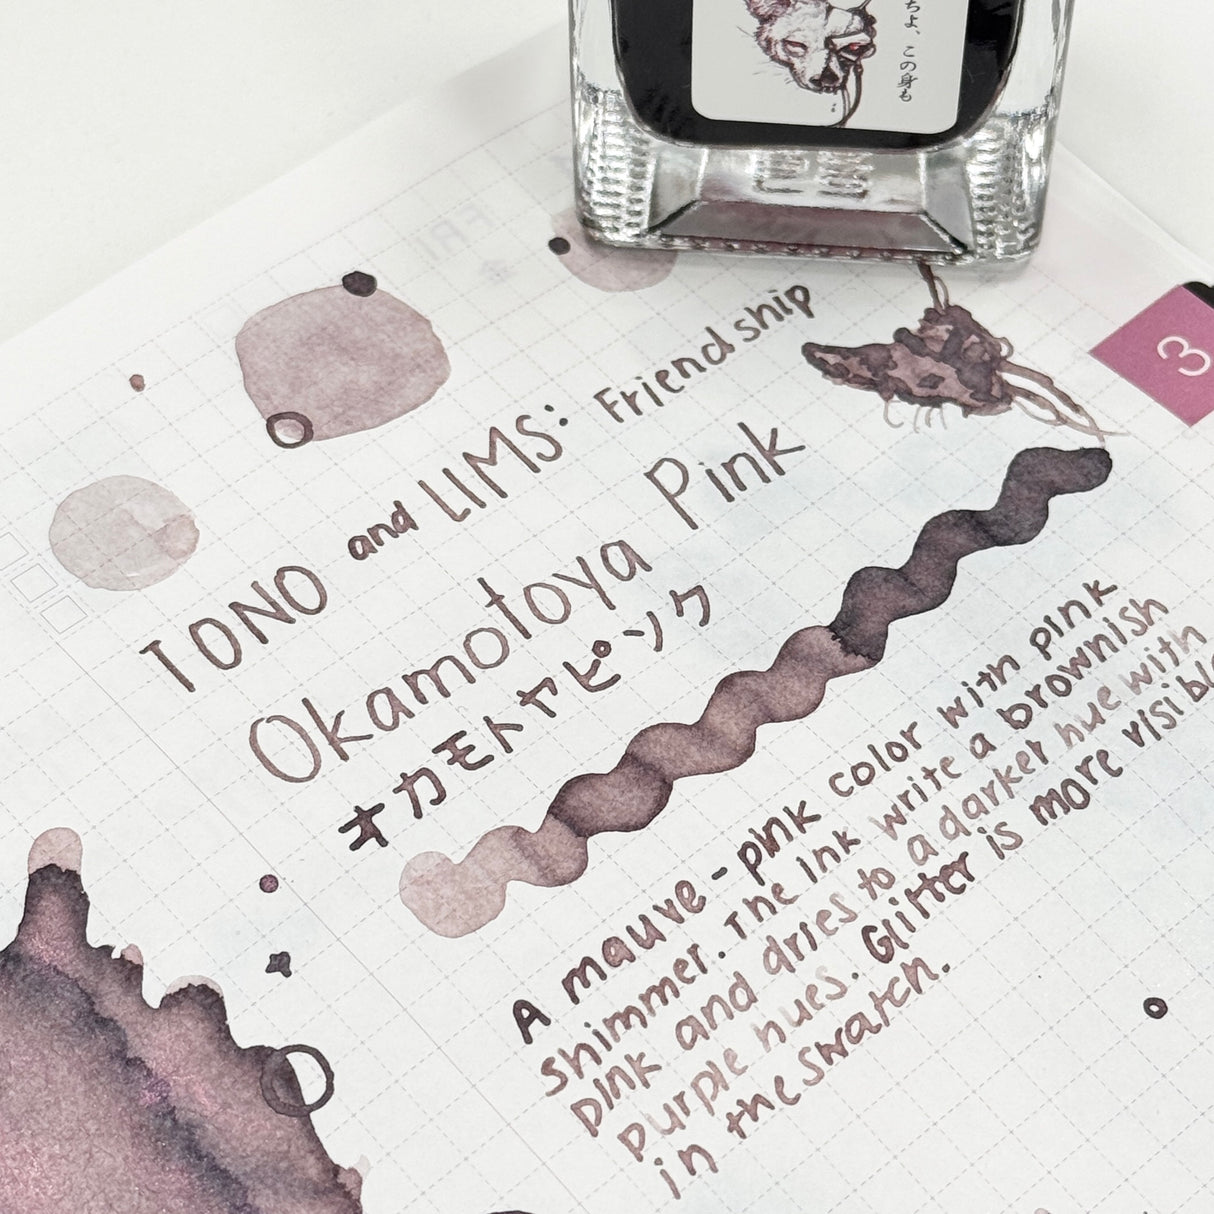 ちよ、この身も
3
TONO and LIMS: Friendship
Okamotoya Pink
オカモトヤピンク
A mauve-pink color with pink
shimmer. The ink write a brownish
pink and dries to a darker hue with
purple hues. Glitter is more visibl
in the swatch.